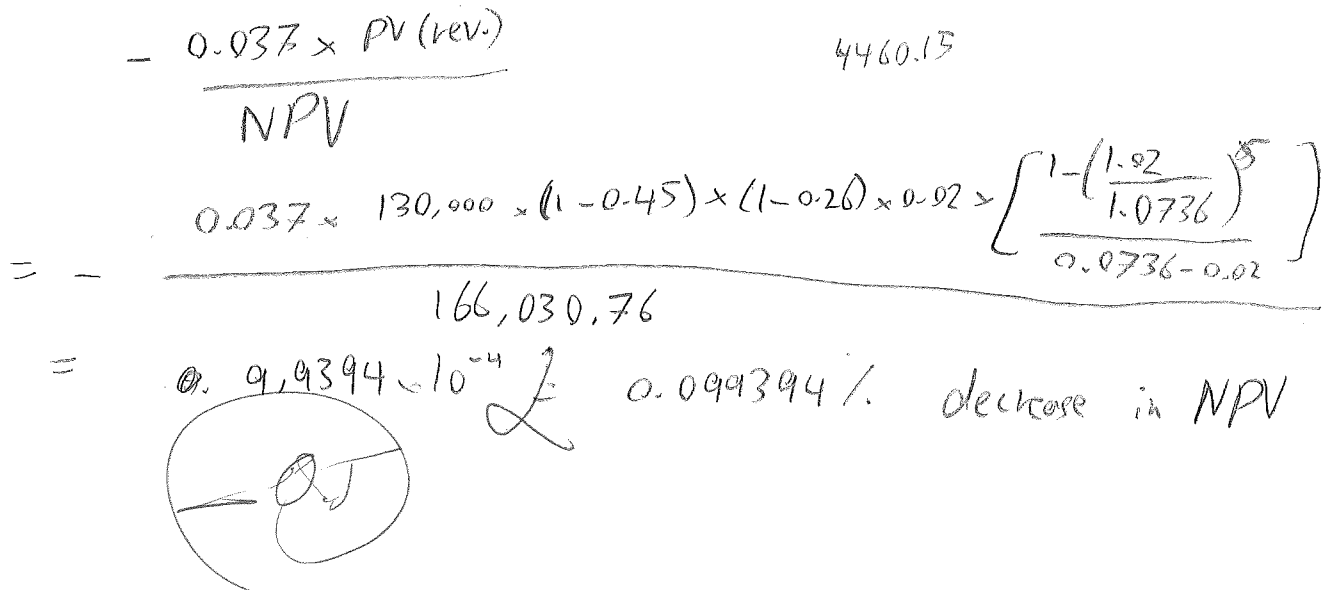 - 0.037 × PV (rev.) 4460.15
NPV
= - 0.037 × 130,000 × (1 - 0.45) × (1 - 0.26) × 0.02 × [1 - (1.02 / 1.0736)^5 / 0.0736 - 0.02]
166,030.76
= 9,9394 × 10^-4 = 0.099394 % decrease in NPV